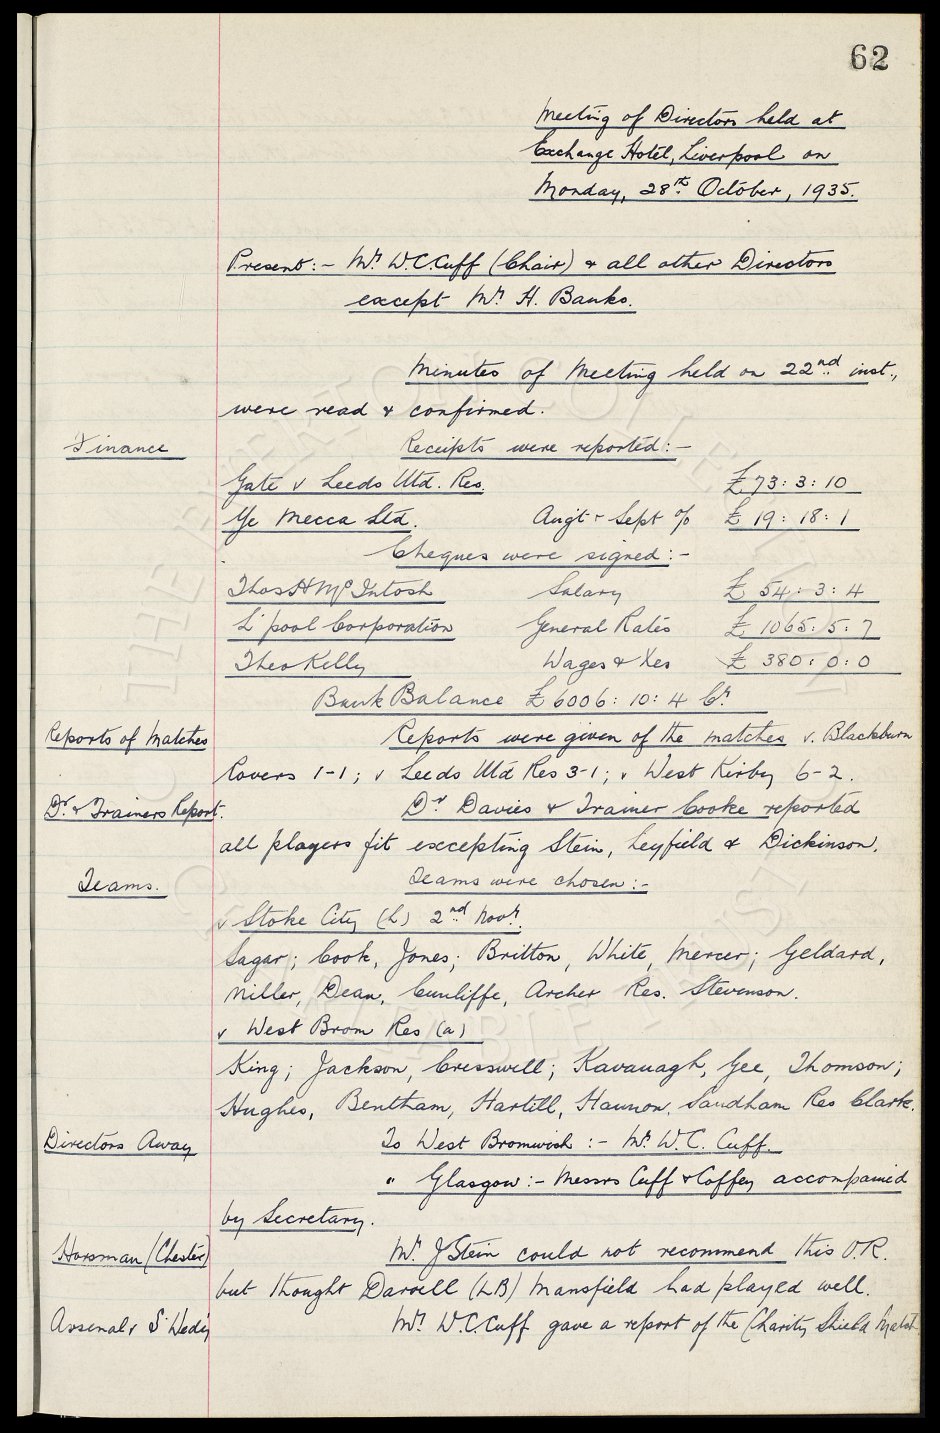 62
Meeting of Directors held at
Exchange Hotel, Liverpool on
Monday, 28th October, 1935.
Present:- Mr. W.C. Cuff (Chair) & all other Directors
except Mr. H. Banks.
Minutes of Meeting held on 22nd inst.,
were read & confirmed.
Finance
Receipts were reported:-
Gate v Leeds Utd. Res. £73:3:10
Ye Mecca Ltd. Augt & Sept % £19:18:1
Cheques were signed:-
Thos H McIntosh Salary £54:3:4
L'pool Corporation General Rates £1065:5:7
Theo Kelly Wages & Xes £380:0:0
Bank Balance £6006:10:4 Cr.
Reports of Matches Reports were given of the matches v. Blackburn
Rovers 1-1; v Leeds Utd Res 3-1; v West Kirby 6-2.
Dr. & Trainers Report. Dr Davies & Trainer Cooke reported
all players fit excepting Stein, Leyfield & Dickinson.
Teams. Teams were chosen:-
v Stoke City (L) 2nd Novr.
Sagar; Cook, Jones; Britton, White, Mercer; Geldard,
Miller, Dean, Cunliffe, Archer Res. Stevenson.
v West Brom Res (a)
King; Jackson, Cresswell; Kavanagh, Gee, Thomson;
Hughes, Bentham, Hartill, Hannon, Sandham Res Clark.
Directors Away To West Bromwich:- Mr. W.C. Cuff.
" Glasgow:- Messrs Cuff & Coffey accompanied
by Secretary.
Horsman (Chester) Mr. J Stein could not recommend this O.R.
but thought Darvell (LB) Mansfield had played well.
Arsenal v S. Wedy Mr. W.C. Cuff gave a report of the Charity Shield Match